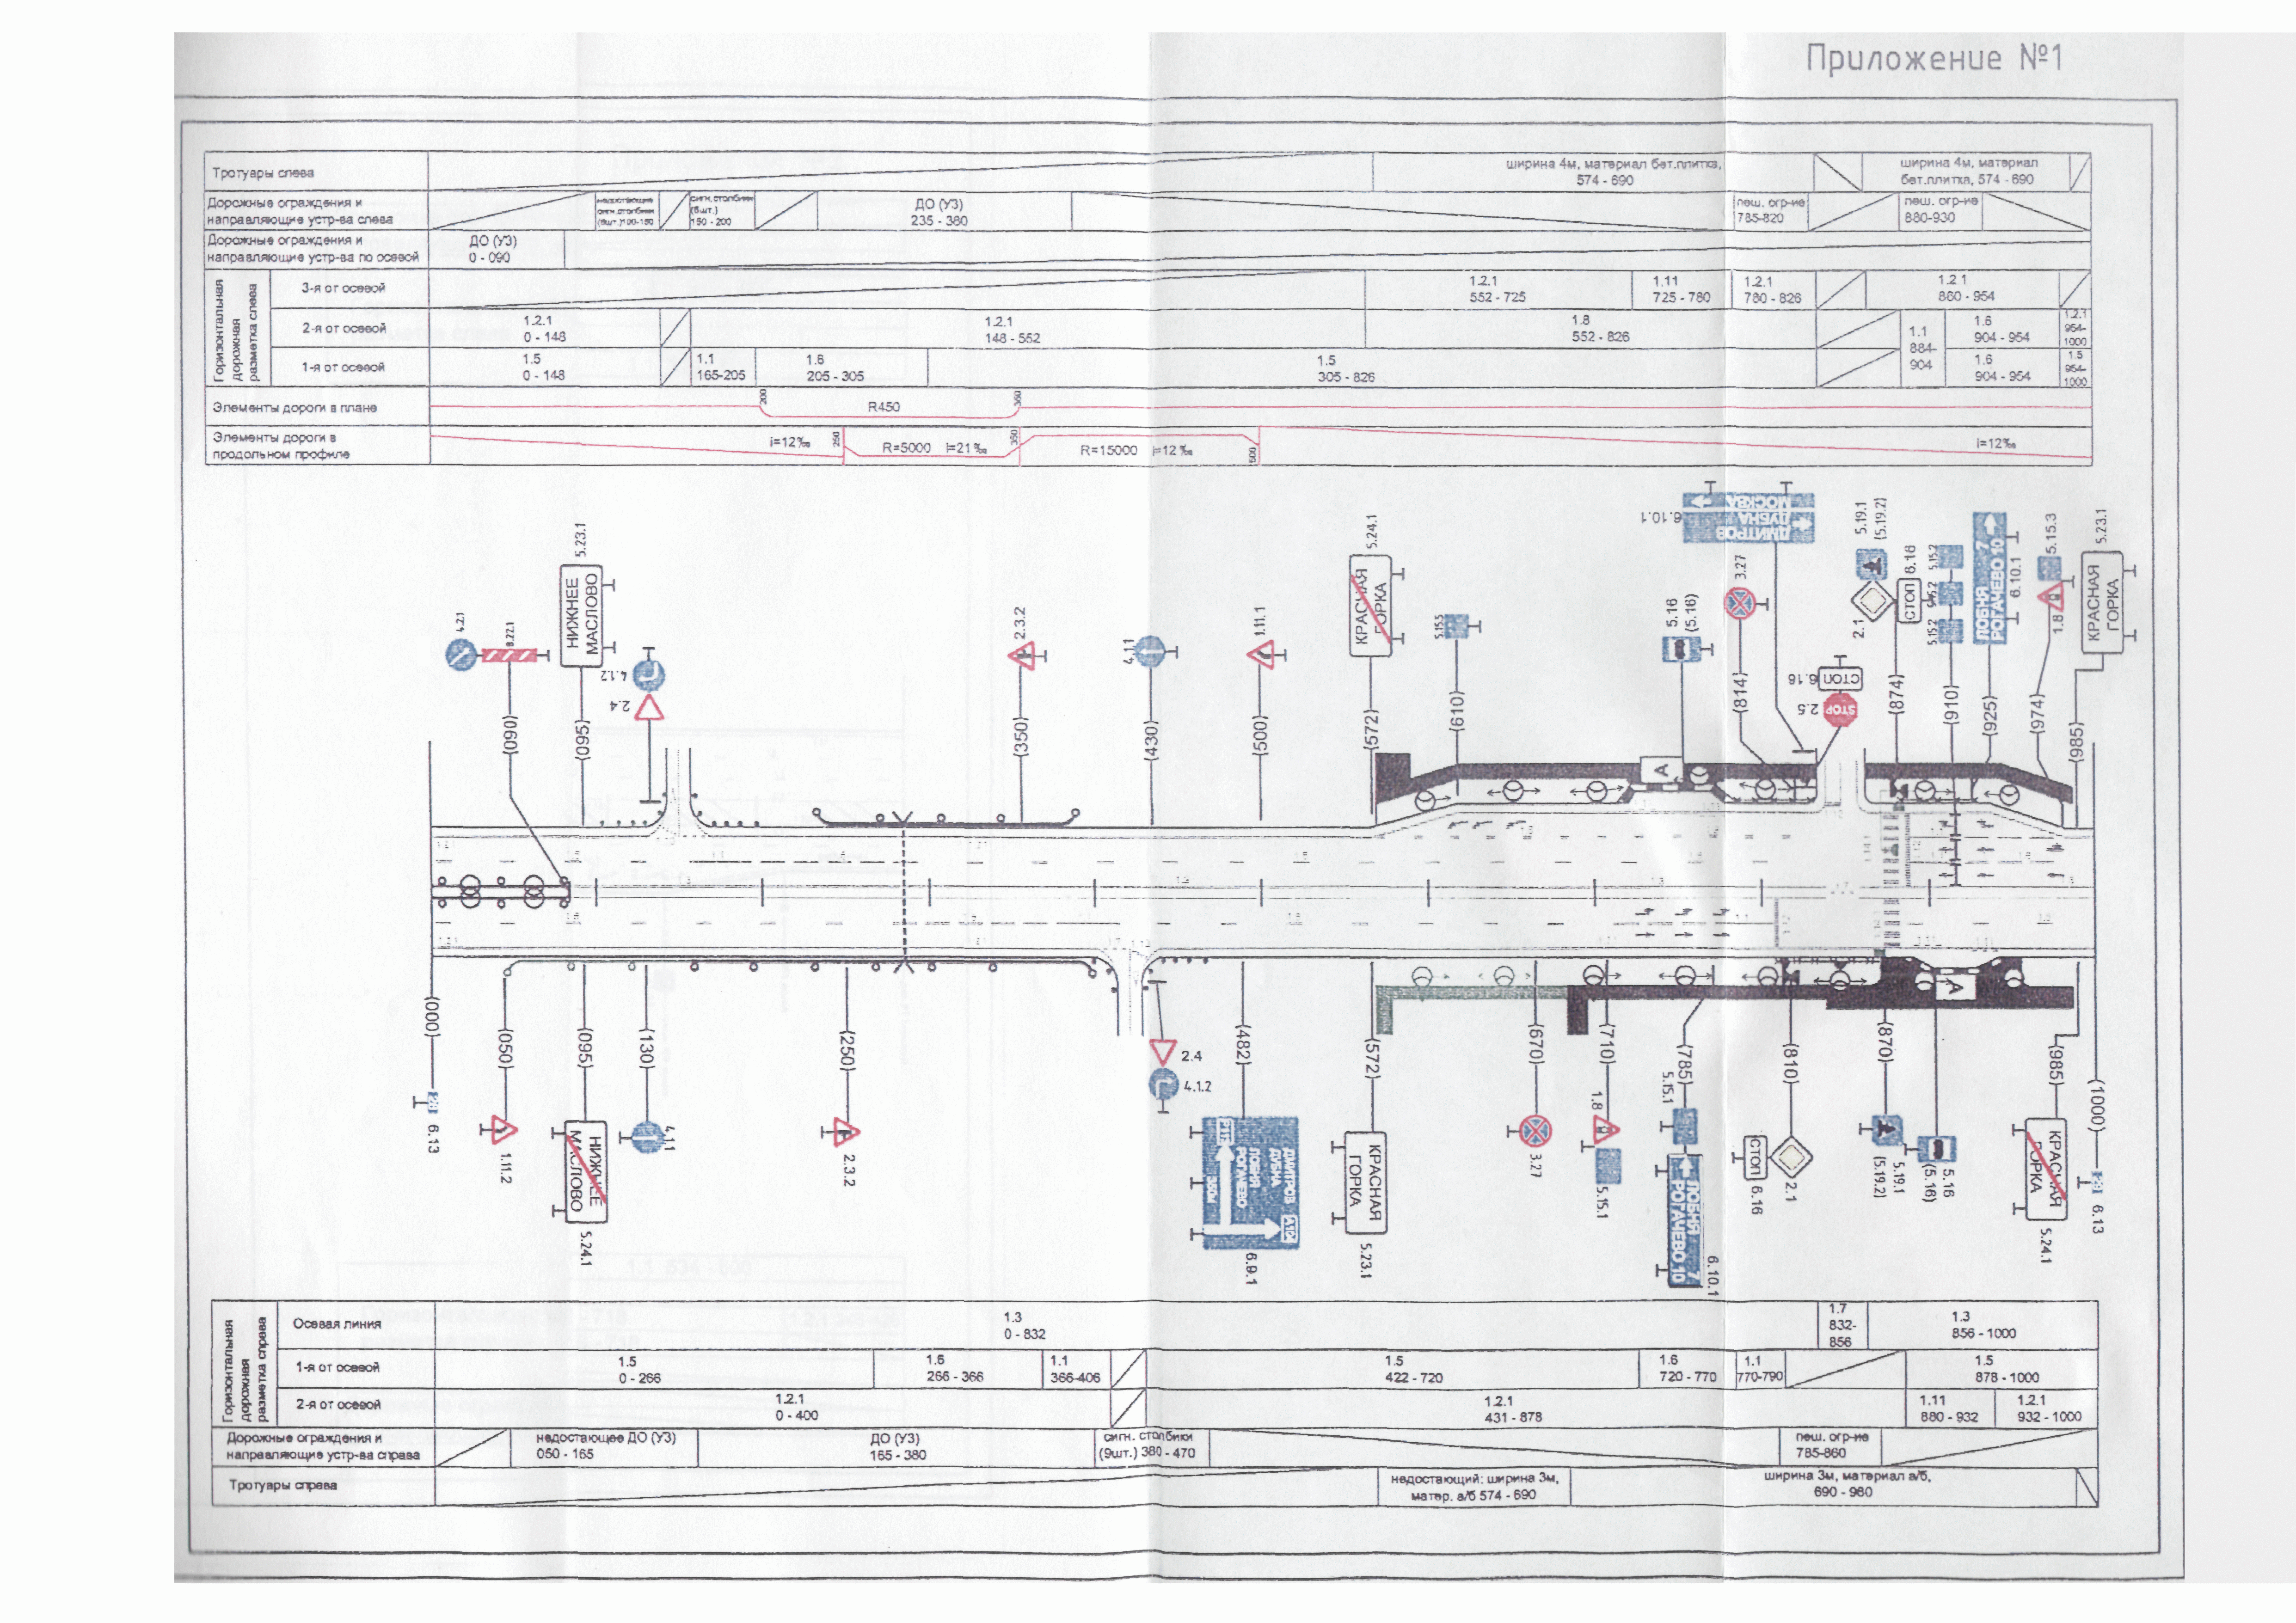 Приложение №1
Тротуары слева
ширина 4м, материал бет.плитка,
574 - 690
ширина 4м, материал
бет.плитка, 574 - 690
Дорожные ограждения и
направляющие устр-ва слева
недостающие
сигн.столбики
(6шт.)100-150
сигн.столбики
(8шт.)
150 - 200
ДО (УЗ)
235 - 380
пеш. огр-ие
785-820
пеш. огр-ие
880-930
Дорожные ограждения и
направляющие устр-ва по осевой
ДО (УЗ)
0 - 090
Горизонтальная
дорожная
разметка слева
3-я от осевой
1.2.1
552 - 725
1.11
725 - 780
1.2.1
780 - 826
1.2.1
860 - 954
2-я от осевой
1.2.1
0 - 148
1.2.1
148 - 552
1.8
552 - 826
1.1
884-
904
1.6
904 - 954
1.2.1
954-
1000
1-я от осевой
1.5
0 - 148
1.1
165-205
1.6
205 - 305
1.5
305 - 826
1.6
904 - 954
1.5
954-
1000
Элементы дороги в плане
200
R450
360
Элементы дороги в
продольном профиле
i=12‰
250
R=5000 i=21‰
350
R=15000 i=12‰
500
i=12‰
4.2.1
8.22.1
(090)
5.23.1
НИЖНЕЕ
МАСЛОВО
(095)
4.1.2
2.4
2.3.2
(350)
4.1.1
(430)
1.11.1
(500)
5.24.1
КРАСНАЯ
ГОРКА
(572)
5.15.5
(610)
5.16
(5.16)
6.10.1
МОСКВА
ДУБНА
ДМИТРОВ
3.27
(814)
6.16
СТОП
2.5
STOP
5.19.1
(5.19.2)
2.1
6.16
СТОП
(874)
5.15.2
5.15.2
5.15.2
(910)
ЛОБНЯ 7
РОГАЧЕВО 10
6.10.1
(925)
5.15.3
1.8
(974)
5.23.1
КРАСНАЯ
ГОРКА
(985)
А
А
(000)
6.13
(050)
1.11.2
(095)
НИЖНЕЕ
МАСЛОВО
5.24.1
(130)
4.1.1
(250)
2.3.2
2.4
4.1.2
(482)
ДМИТРОВ
ДУБНА
ЛОБНЯ
РОГАЧЕВО
350м
А104
6.9.1
(572)
КРАСНАЯ
ГОРКА
5.23.1
(670)
3.27
(710)
1.8
5.15.1
(785)
5.15.1
ЛОБНЯ 7
РОГАЧЕВО 10
6.10.1
(810)
СТОП
6.16
2.1
(870)
5.19.1
(5.19.2)
5.16
(5.16)
(985)
КРАСНАЯ
ГОРКА
5.24.1
(1000)
6.13
Горизонтальная
дорожная
разметка справа
Осевая линия
1.3
0 - 832
1.7
832-
856
1.3
856 - 1000
1-я от осевой
1.5
0 - 266
1.6
266 - 366
1.1
366-406
1.5
422 - 720
1.6
720 - 770
1.1
770-790
1.5
878 - 1000
2-я от осевой
1.2.1
0 - 400
1.2.1
431 - 878
1.11
880 - 932
1.2.1
932 - 1000
Дорожные ограждения и
направляющие устр-ва справа
недостающее ДО (УЗ)
050 - 165
ДО (УЗ)
165 - 380
сигн. столбики
(9шт.) 380 - 470
пеш. огр-ие
785-860
Тротуары справа
недостающий: ширина 3м,
матер. а/б 574 - 690
ширина 3м, материал а/б,
690 - 980